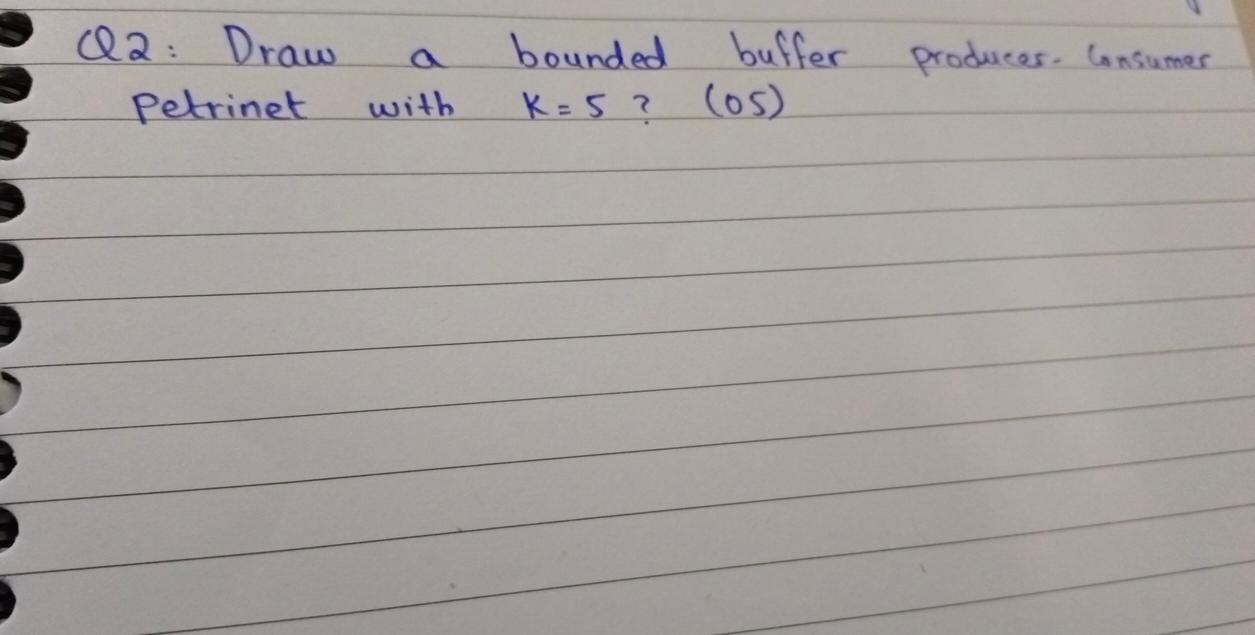 Q2: Draw a bounded buffer producer-Consumer
Petrinet with K=5? (05)